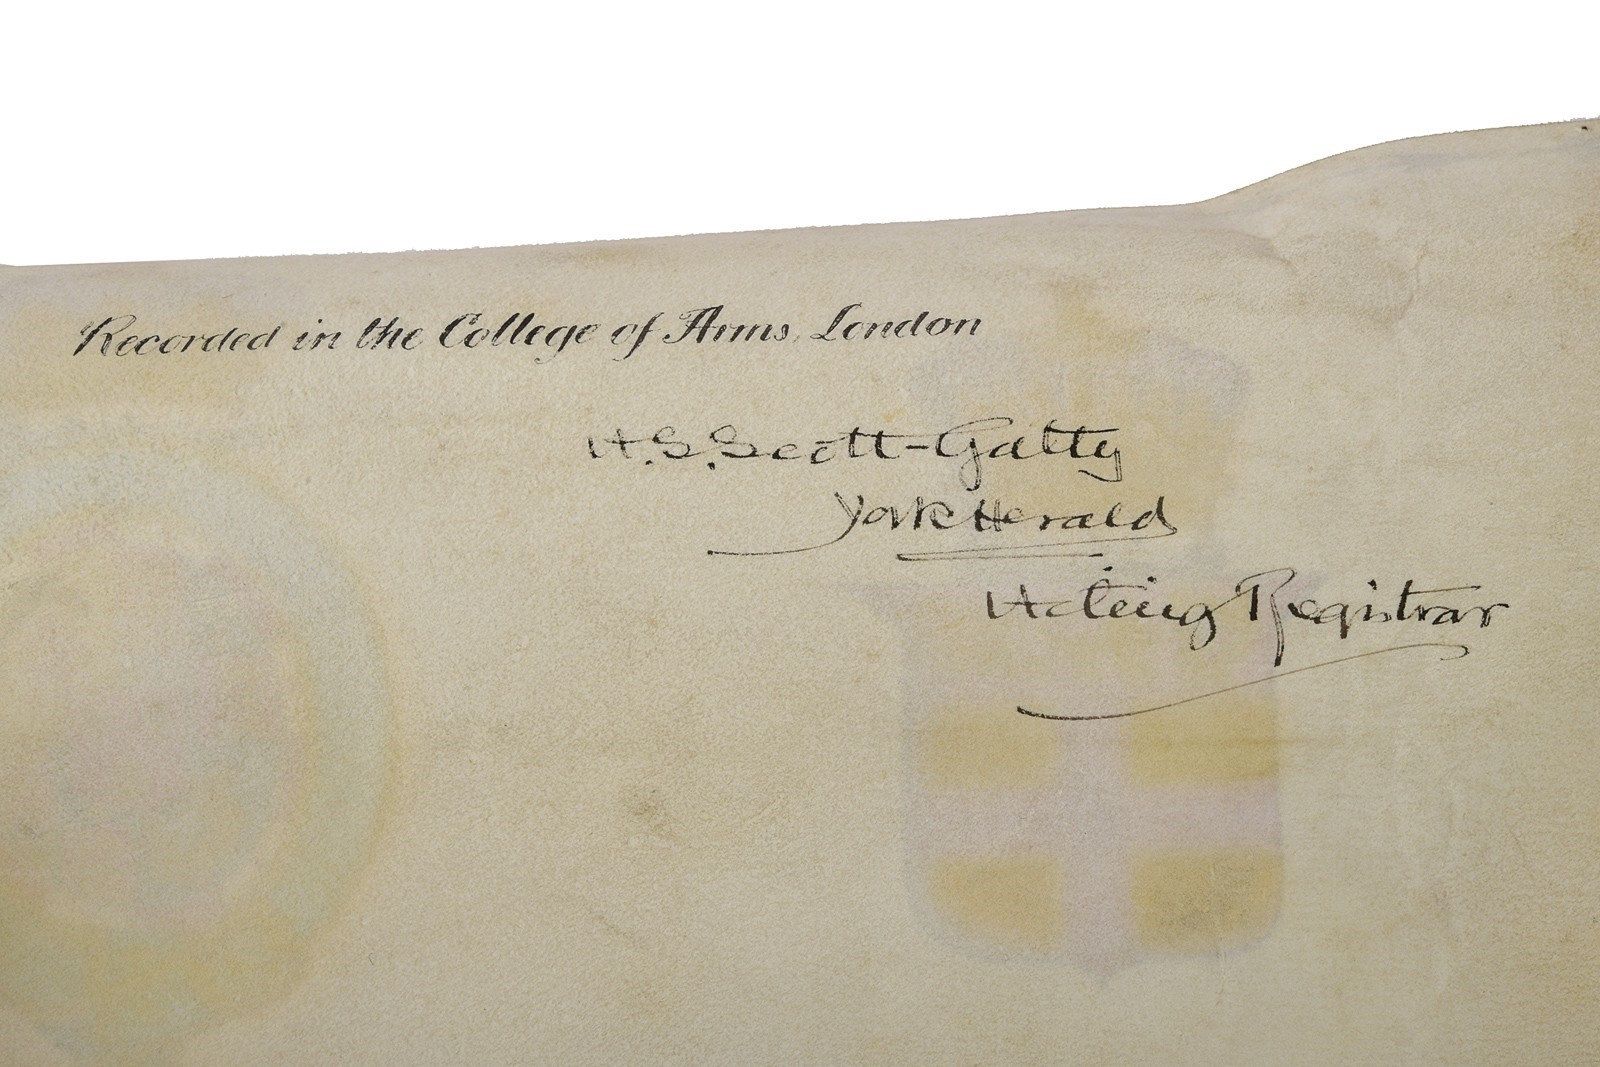 Recorded in the College of Arms, London
A.S. Scott-Gatty
York Herald
Acting Registrar